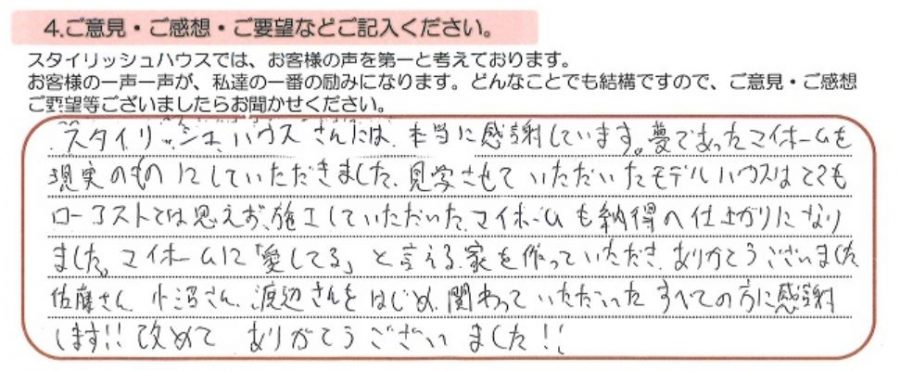 4.ご意見・ご感想・ご要望などご記入ください。
スタイリッシュハウスでは、お客様の声を第一と考えております。
お客様の一声一声が、私達の一番の励みになります。どんなことでも結構ですので、ご意見・ご感想
ご要望等ございましたらお聞かせください。
スタイリッシュハウスさんには、本当に感謝しています。夢であったマイホームを
現実のものにしていただきました。見学させていただいたモデルハウスはとても
ローコストでは思えず、施工していただいたマイホームも納得の仕上がりになり
ました。マイホームに「愛してる」と言える家を作っていただき、ありがとうございました
佐藤さん、小沼さん、渡辺さんをはじめ、関わっていただいたすべての方に感謝
します!!改めてありがとうございました!!